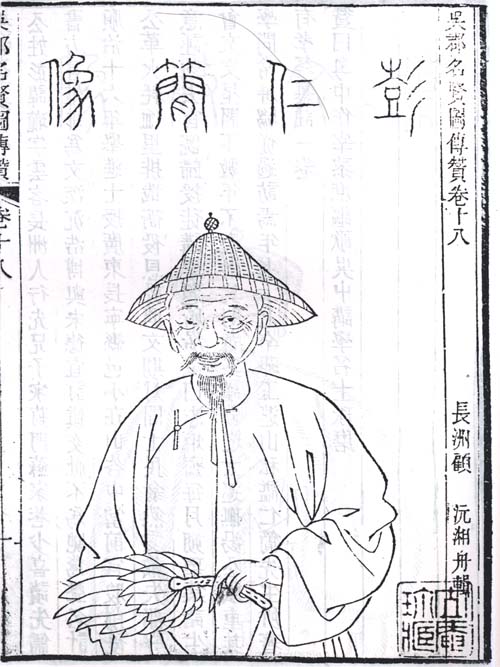 吳郡名賢圖傳贊卷十八
長洲顧 沅湘舟輯
彭仁簡像
吳郡名賢圖傳贊 卷十八